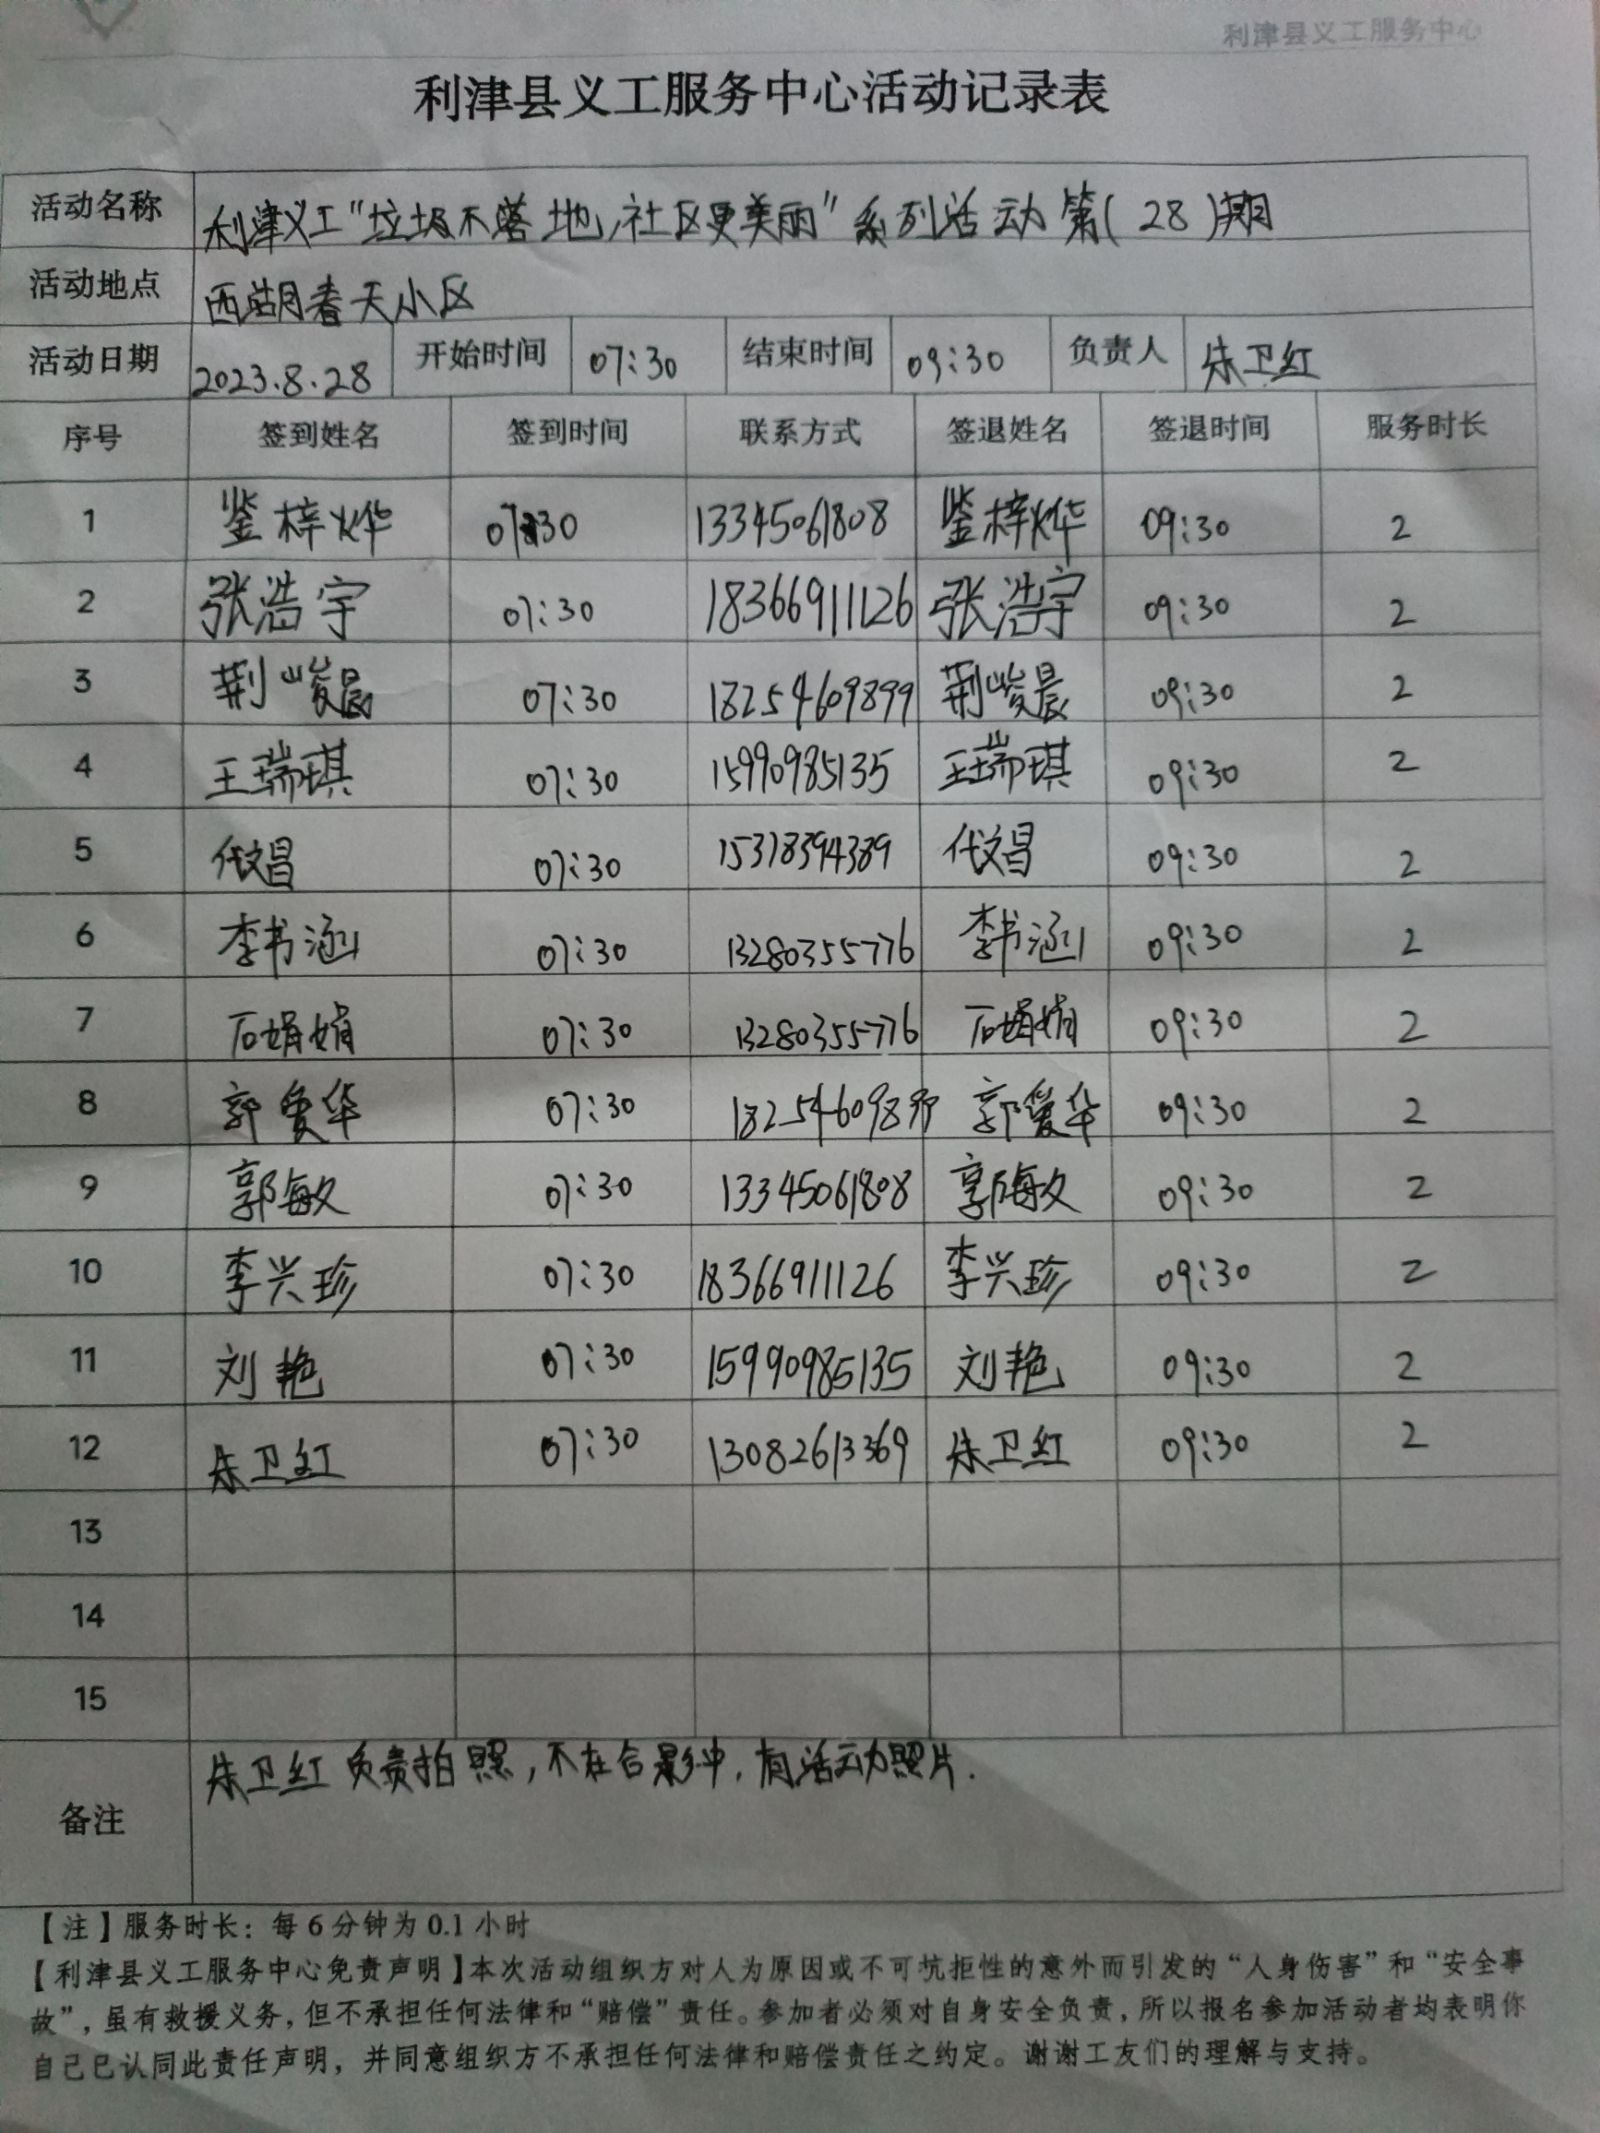 利津县义工服务中心
利津县义工服务中心活动记录表
活动名称 利津义工“垃圾不落地,社区更美丽”系列活动第(28)期
活动地点 西湖春天小区
活动日期 2023.8.28 开始时间 07:30 结束时间 09:30 负责人 朱卫红
序号 签到姓名 签到时间 联系方式 签退姓名 签退时间 服务时长
1 綦梓烨 07:30 13345061808 綦梓烨 09:30 2
2 张浩宇 07:30 18366911126 张浩宇 09:30 2
3 荆峻晨 07:30 18254609899 荆峻晨 09:30 2
4 王瑞琪 07:30 15990985135 王瑞琪 09:30 2
5 代文昌 07:30 15318394389 代文昌 09:30 2
6 李书涵 07:30 13280355776 李书涵 09:30 2
7 石娟娟 07:30 13280355776 石娟娟 09:30 2
8 郭爱华 07:30 18254609899 郭爱华 09:30 2
9 郭海敏 07:30 13345061808 郭海敏 09:30 2
10 李兴珍 07:30 18366911126 李兴珍 09:30 2
11 刘艳 07:30 15990985135 刘艳 09:30 2
12 朱卫红 07:30 13082613369 朱卫红 09:30 2
13
14
15
备注 朱卫红负责拍照,不在合影中,有活动照片.
【注】服务时长：每6分钟为0.1小时
【利津县义工服务中心免责声明】本次活动组织方对人为原因或不可坑拒性的意外而引发的“人身伤害”和“安全事
故”，虽有救援义务，但不承担任何法律和“赔偿”责任。参加者必须对自身安全负责，所以报名参加活动者均表明你
自己已认同此责任声明，并同意组织方不承担任何法律和赔偿责任之约定。谢谢工友们的理解与支持。